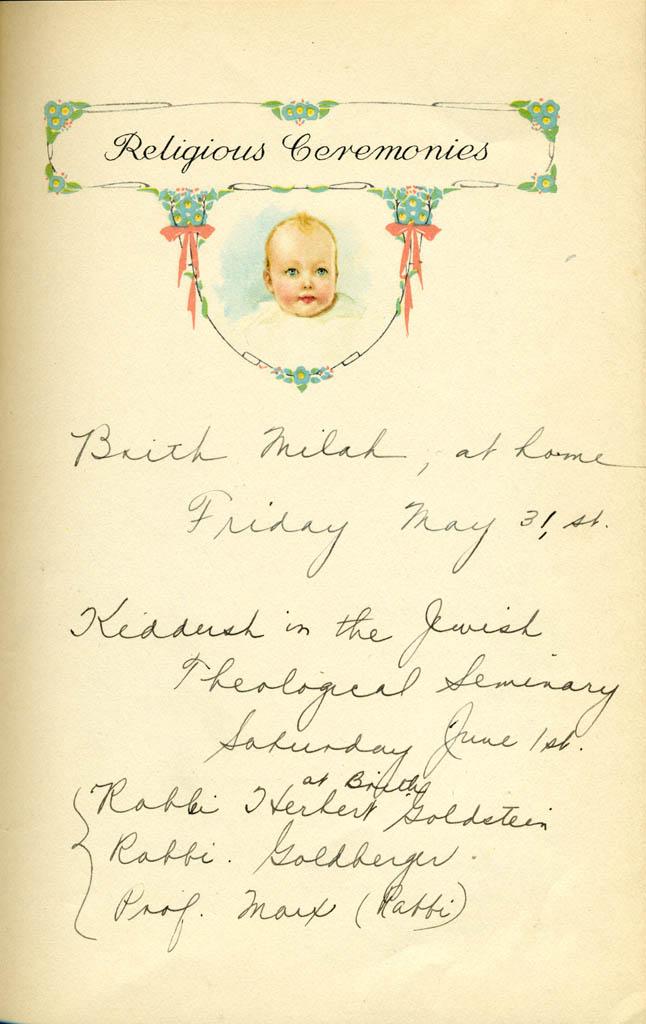 Religious Ceremonies
Brith Milah, at home
Friday May 31, st.
Kiddush in the Jewish
Theological Seminary
Saturday June 1st.
at Brith
Rabbi Herbert Goldstein
Rabbi. Goldberger
Prof. Marx (Rabbi)